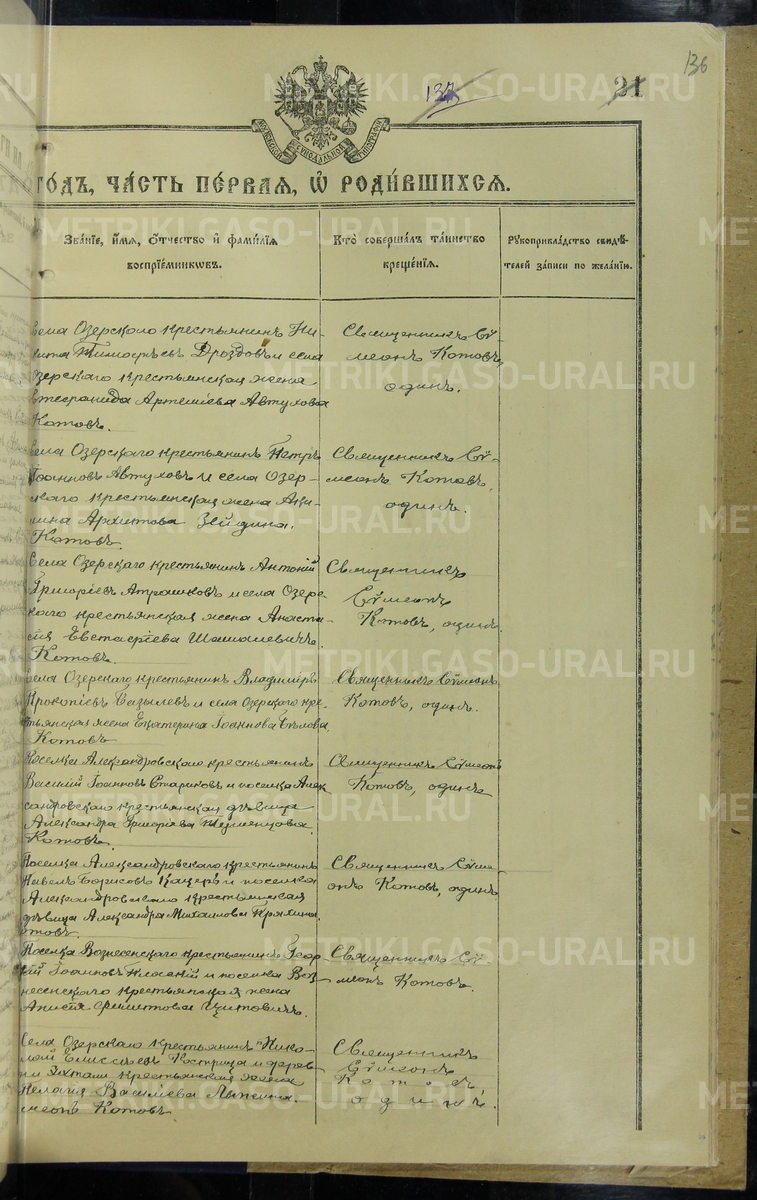 136
137
21
МОСКОВСКОЙ СѴНОДАЛЬНОЙ ТИПОГРАФІИ
ГОДЪ, ЧАСТЬ ПЕРВАЯ, Ѡ РОДИВШИХСЯ.
Званіе, имя, отчество и фамилія
воспріемниковъ.
Кто совершалъ таинство
крещенія.
Рукоприкладство свидѣ-
телей записи по желанію.
Села Озерскаго крестьянинъ Ни-
кита Тимофѣевъ Дроздовъ и села
Озерскаго крестьянская жена
Артеміева Автухова
Котовъ.
Священникъ Сѵ-
меонъ Котовъ,
одинъ.
Села Озерскаго крестьянинъ Петръ
Іоанновъ Автуховъ и села Озер-
скаго крестьянская жена Аки-
лина Архипова
Котовъ.
Священникъ Сѵ-
меонъ Котовъ,
одинъ.
Села Озерскаго крестьянинъ Антоній
Григоріевъ Атрашковъ и села Озерс-
каго крестьянская жена Анаста-
сія Евстафіева Шашалевичъ
Котовъ.
Священникъ
Сѵмеонъ
Котовъ, одинъ.
Села Озерскаго крестьянинъ Владиміръ
Прокопіевъ и села Озерскаго кре-
стьянская жена Екатерина Іоаннова Бѣлова
Котовъ
Священникъ Сѵмеонъ
Котовъ, одинъ.
Поселка Александровскаго крестьянинъ
Василій Іоанновъ Стариковъ и поселка Алек-
сандровскаго крестьянская дѣвица
Александра Григоріева
Котовъ.
Священникъ Сѵмеонъ
Котовъ, одинъ
Поселка Александровскаго крестьянинъ
Павелъ Борисовъ Кацеръ и поселка
Александровскаго крестьянская
дѣвица Александра Михаилова
отовъ.
Священникъ Сѵме-
онъ Котовъ, одинъ
Поселка Вознесенскаго крестьянинъ Геор-
гій Іоанновъ и поселка Воз-
несенскаго крестьянская жена
Анисія Филиппова
Священникъ Сѵ-
меонъ Котовъ.
Села Озерскаго крестьянинъ Нико-
лай Елисѣевъ Кострица и дерев-
ни крестьянская жена
Пелагія Василіева
меонъ Котовъ
Священникъ
Сѵмеонъ
Котовъ,
одинъ.
METRIKI.GASO-URAL.RU